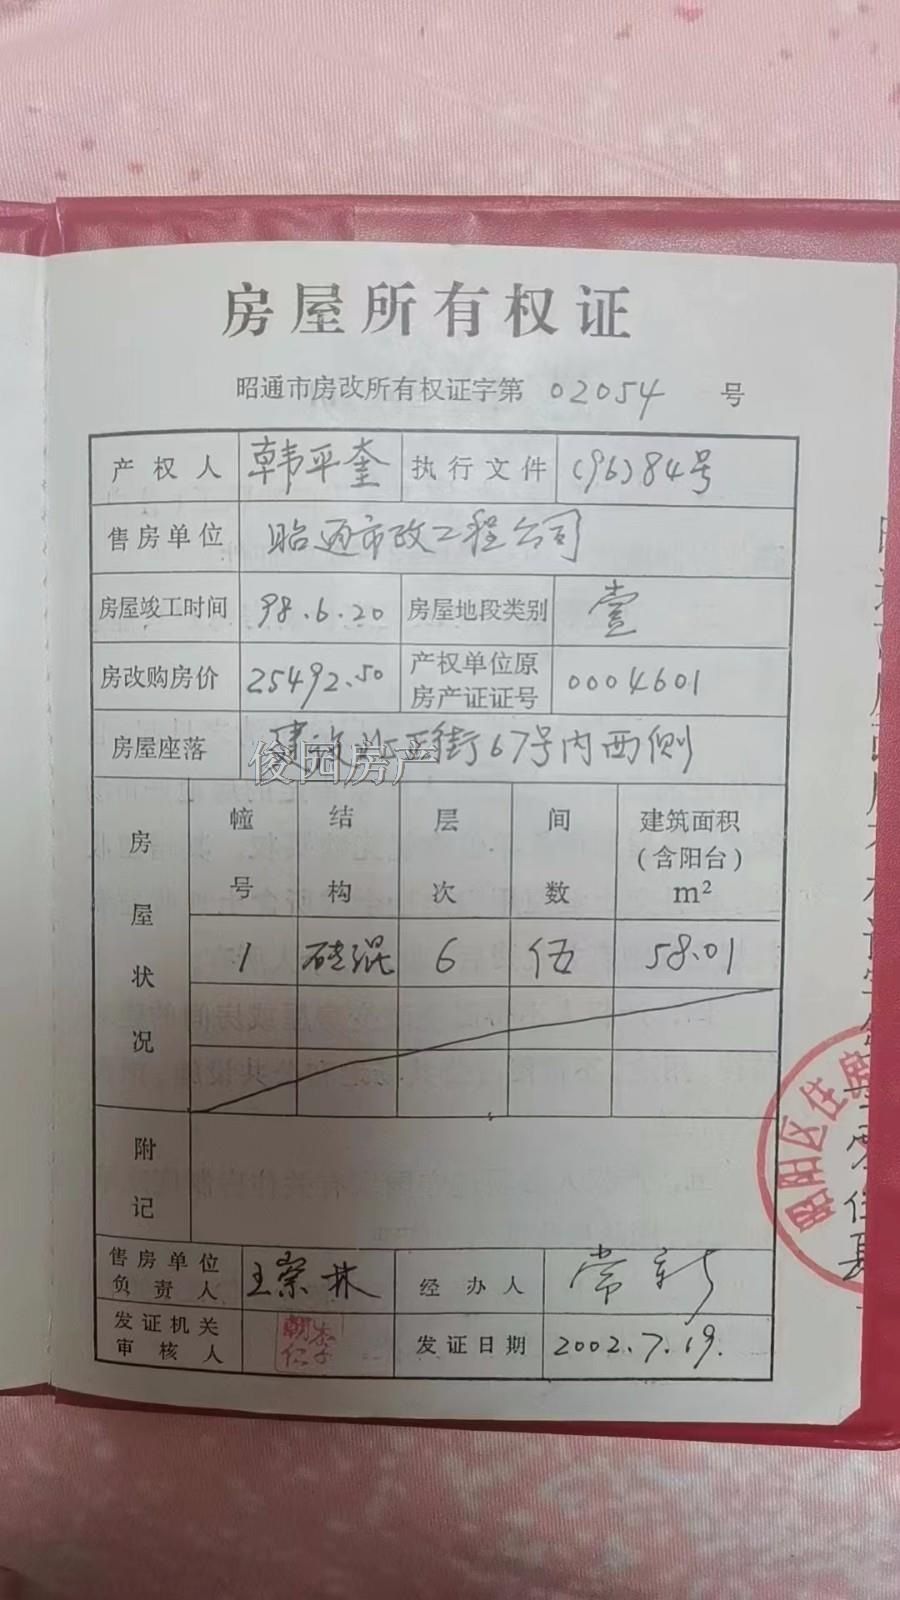 房屋所有权证
昭通市房改所有权证字第 02054 号
产权人 韩平奎 执行文件 (96)84号
售房单位 昭通市政工程公司
房屋竣工时间 98.6.20 房屋地段类别 壹
房改购房价 25492.50 产权单位原房产证证号 0004601
房屋座落 建设北街67号内西侧
俊园房产
房屋状况 幢号 结构 层次 间数 建筑面积(含阳台)m²
1 砖混 6 伍 58.01
附记
售房单位负责人 王崇林 经办人 常新
发证机关审核人 发证日期 2002.7.19.
昭阳区住房